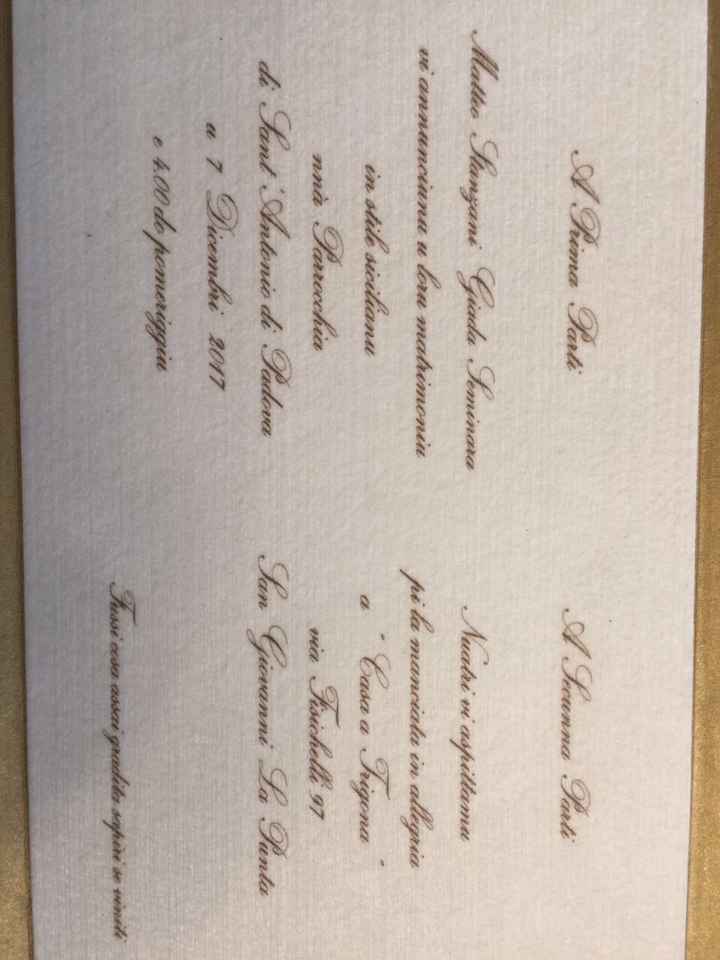 A Prima Parti
Matteo Stanzani Giada Seminara
vi annunciunu u loru matrimoniu
in stile sicilianu
nnà Parrocchia
di Sant'Antonio di Padova
u 7 Dicembri 2017
e 4.00 do pomeriggiu
A Secunna Parti
Nuatri vi aspittamu
pi la manciata in allegria
a "Casa a Trigona"
via Fisichelli 97
San Giovanni La Punta
Fussi cosa assai gradita sapiri se viniti